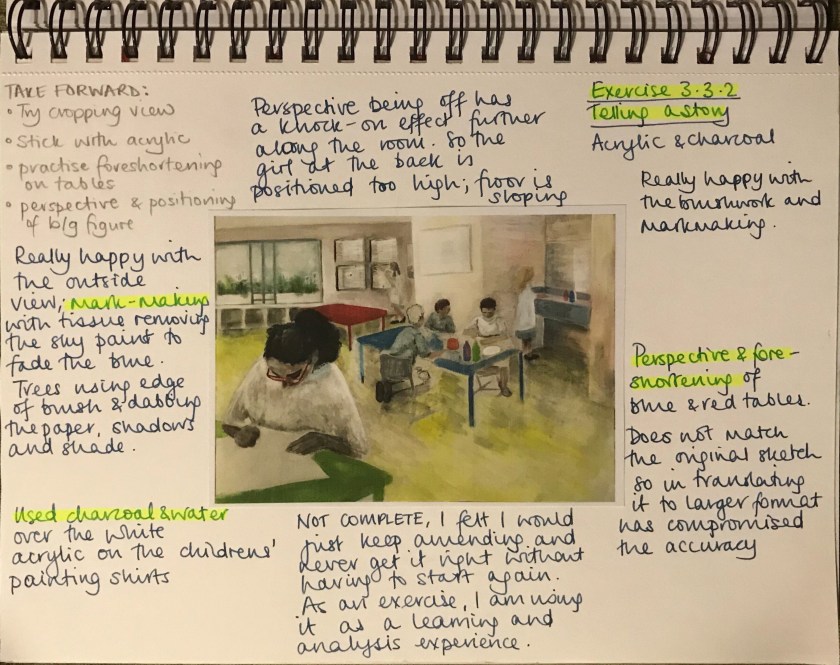 TAKE FORWARD:
• Try cropping view
• Stick with acrylic
• practise foreshortening
on tables
• perspective & positioning
of b/g figure
Perspective being off has
a knock-on effect further
along the room. So the
girl at the back is
positioned too high; floor is
sloping
Exercise 3.3.2
Telling a story
Acrylic & charcoal
Really happy with
the brushwork and
markmaking.
Really happy with
the outside
view; mark-making
with tissue removing
the sky paint to
fade the blue.
Trees using edge
of brush & dabbing
the paper, shadows
and shade.
Perspective & fore-
shortening of
blue & red tables.
Does not match
the original sketch
so in translating
it to larger format
has compromised
the accuracy
Used charcoal & water
over the white
acrylic on the childrens'
painting shirts
NOT COMPLETE, I felt I would
just keep amending and
never get it right without
having to start again.
As an exercise, I am using
it as a learning and
analysis experience.